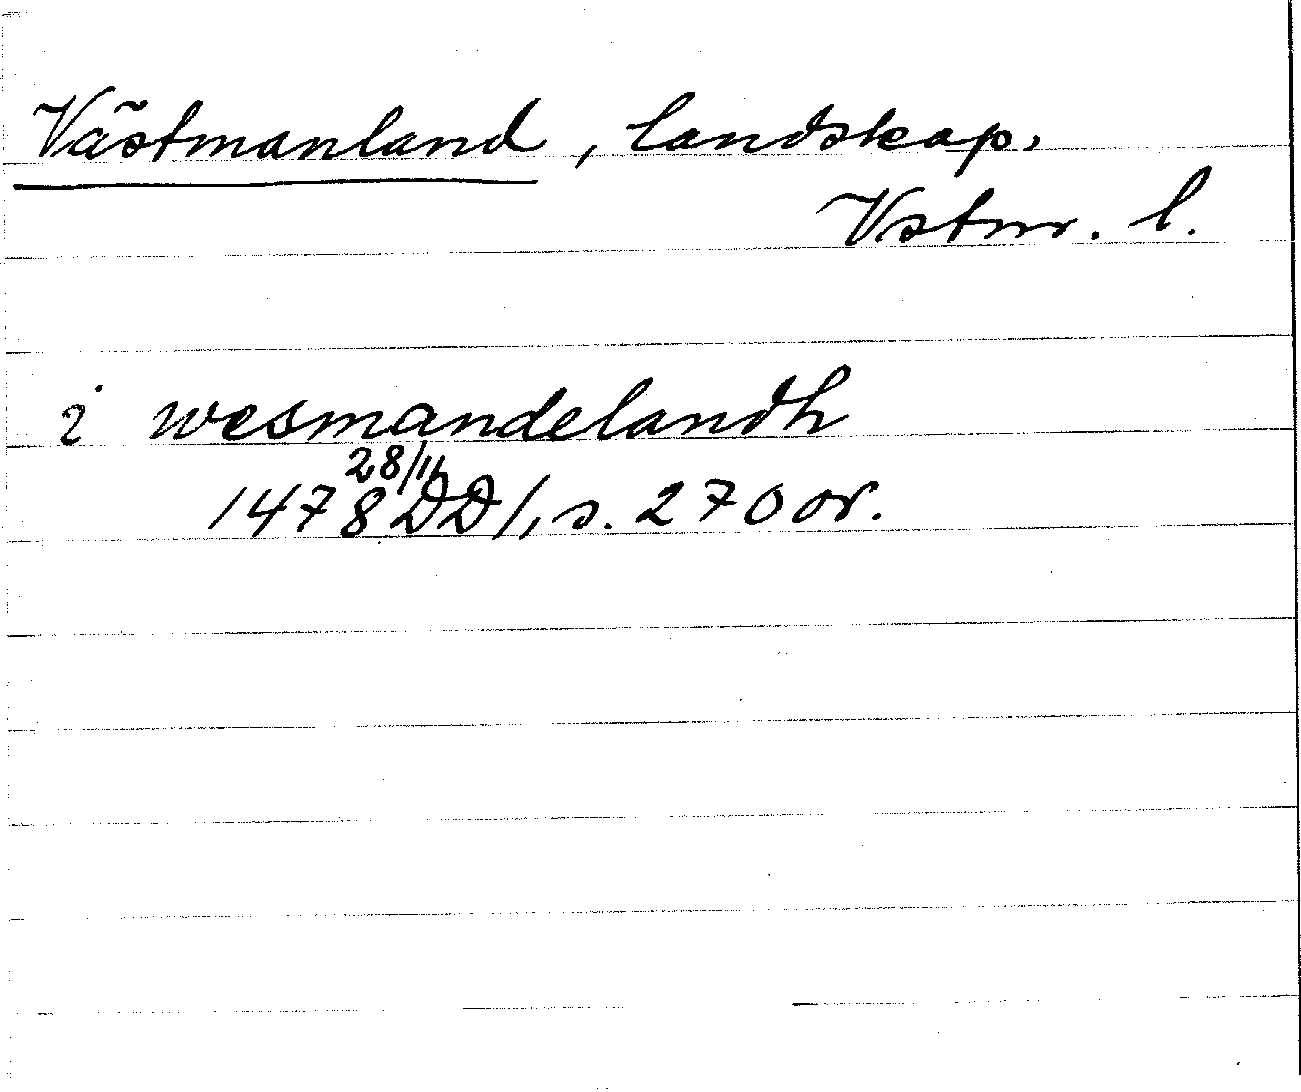 Västmanland, landskap.
Vstm. l.
i wesmandelandh
28/11
1478 DD1, s. 270 or.